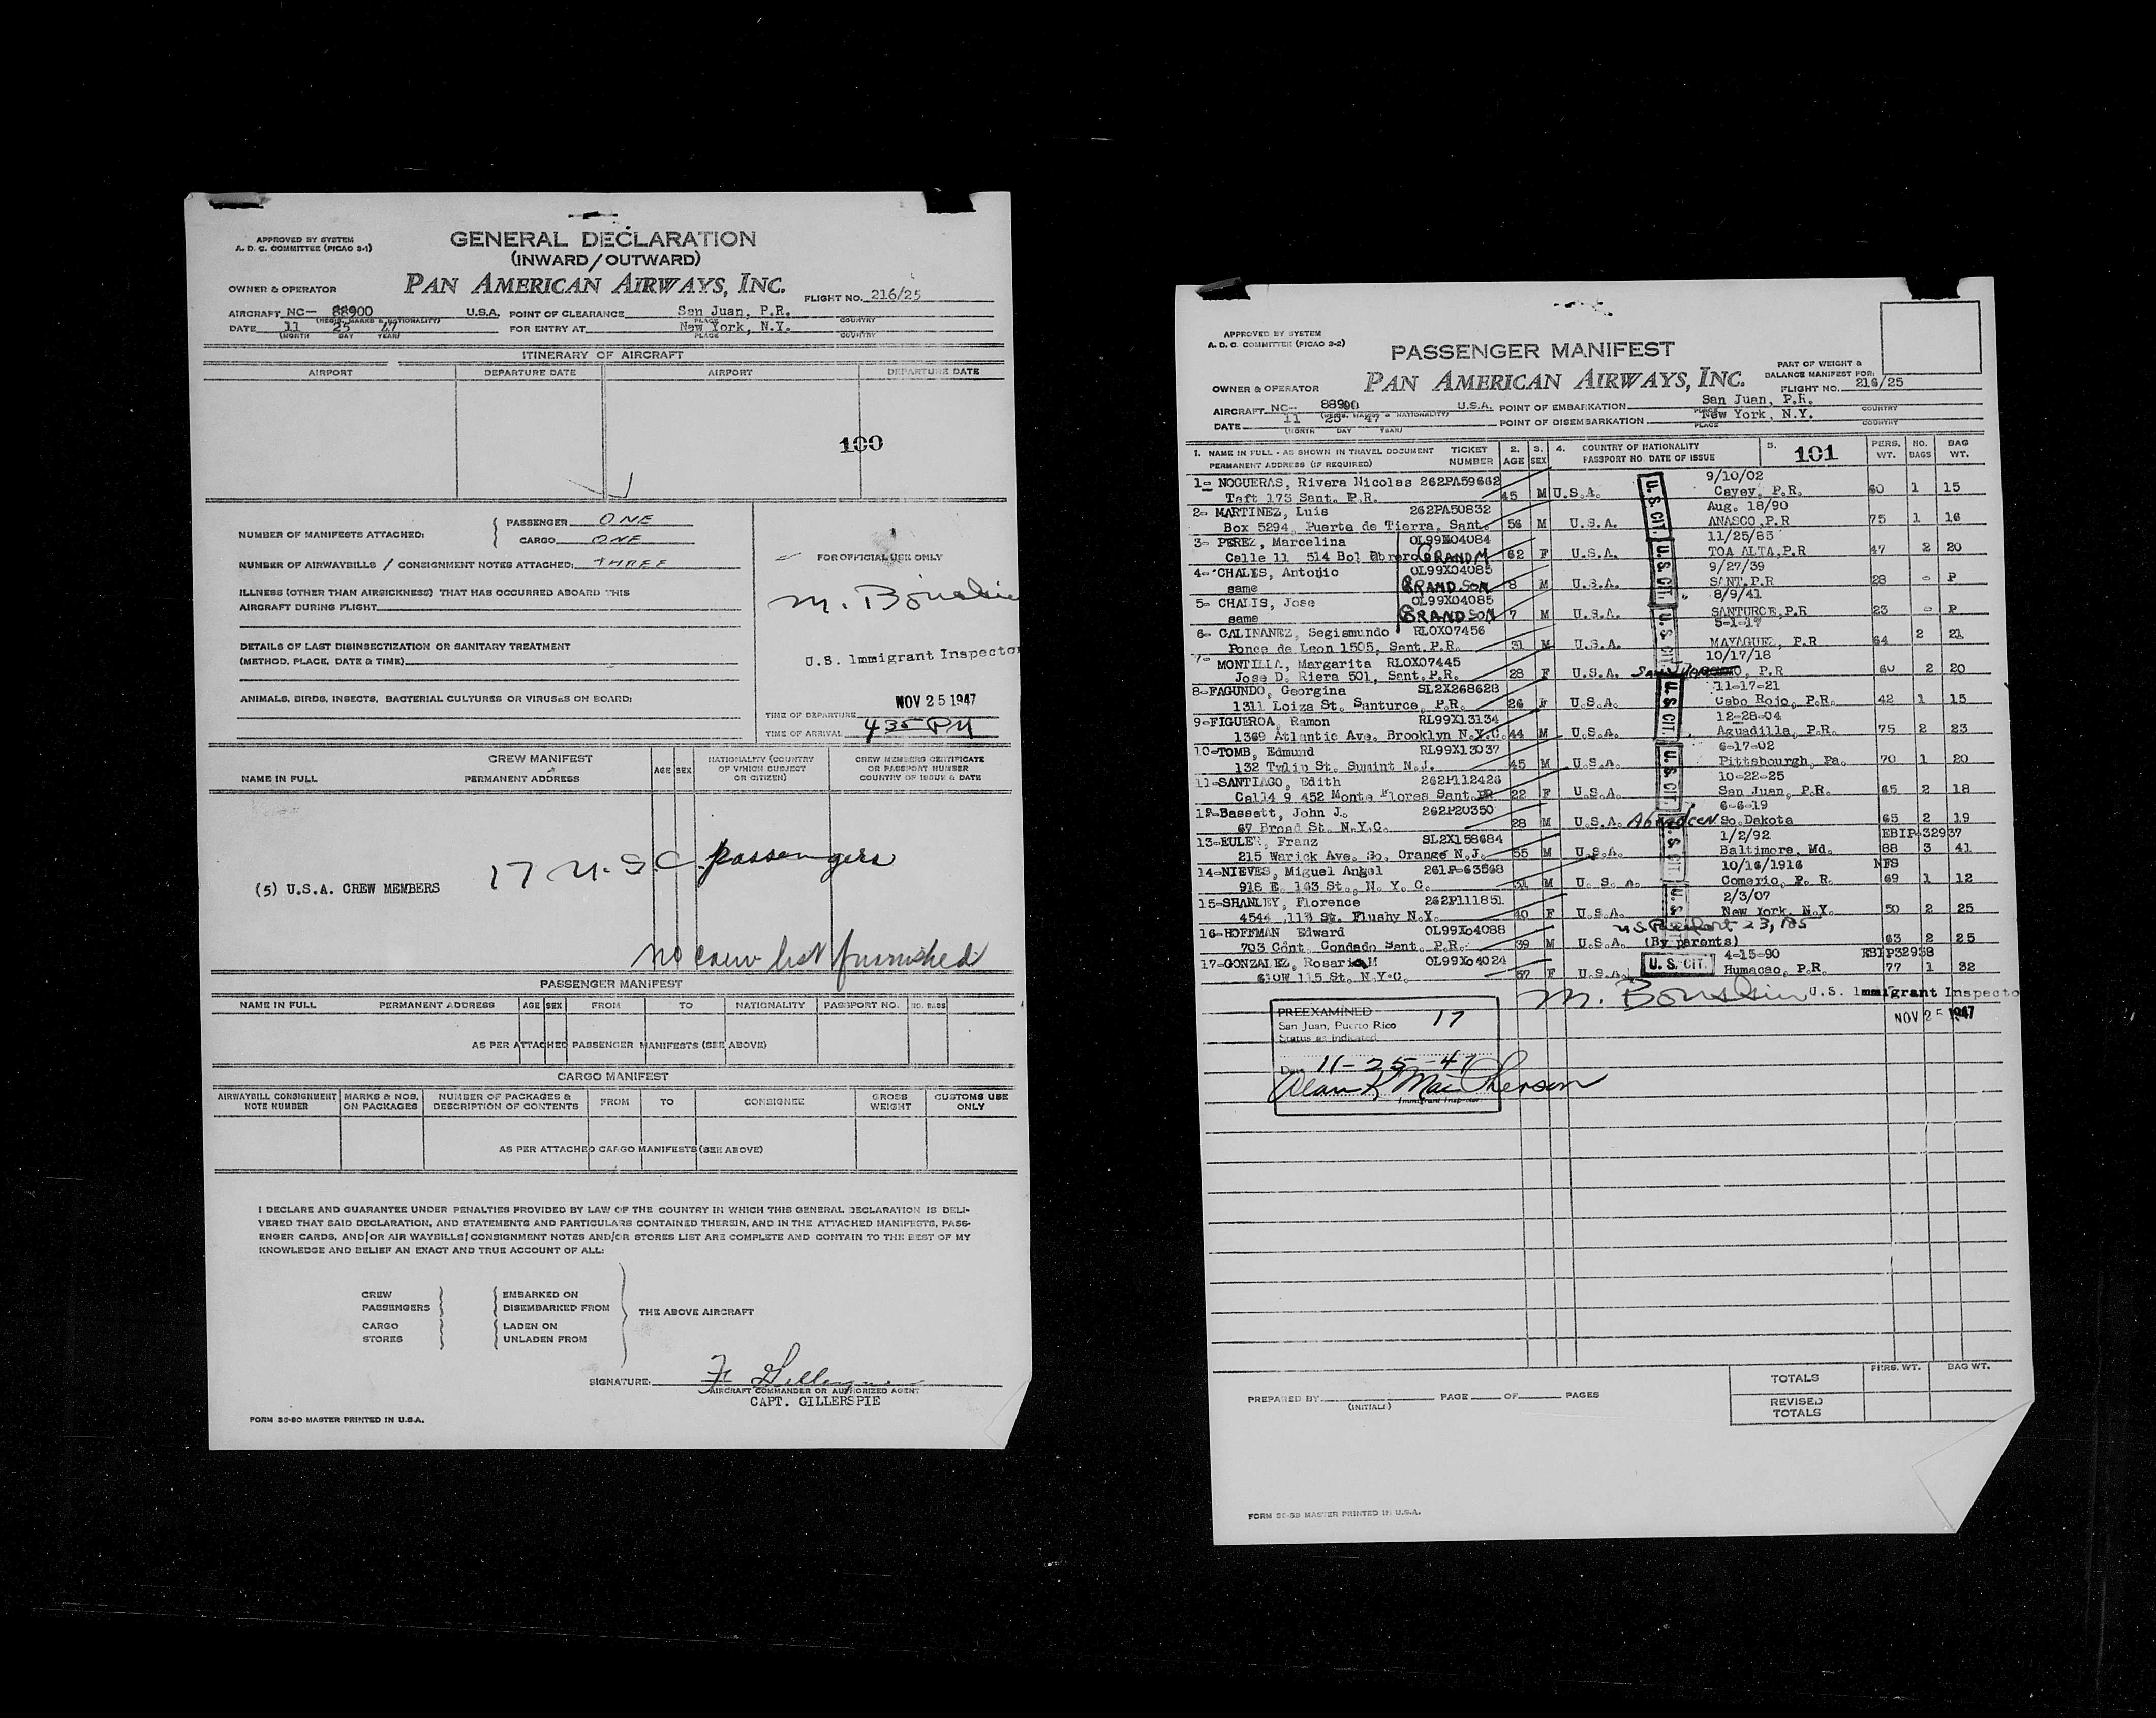 APPROVED BY SYSTEM
A. D. C. COMMITTEE (PICAO 3-1)
GENERAL DECLARATION
(INWARD/OUTWARD)
OWNER & OPERATOR
PAN AMERICAN AIRWAYS, INC.
FLIGHT NO. 216/25
AIRCRAFT NC- 88900 U.S.A. POINT OF CLEARANCE San Juan, P.R.
(REGIS. MARKS & NATIONALITY) PLACE COUNTRY
DATE 11 25 47 FOR ENTRY AT New York, N.Y.
(MONTH DAY YEAR) PLACE COUNTRY
ITINERARY OF AIRCRAFT
AIRPORT DEPARTURE DATE AIRPORT DEPARTURE DATE
100
NUMBER OF MANIFESTS ATTACHED: PASSENGER ONE
CARGO ONE
NUMBER OF AIRWAYBILLS / CONSIGNMENT NOTES ATTACHED: THREE
ILLNESS (OTHER THAN AIRSICKNESS) THAT HAS OCCURRED ABOARD THIS
AIRCRAFT DURING FLIGHT
DETAILS OF LAST DISINSECTIZATION OR SANITARY TREATMENT
(METHOD, PLACE, DATE & TIME)
ANIMALS, BIRDS, INSECTS, BACTERIAL CULTURES OR VIRUSES ON BOARD:
FOR OFFICIAL USE ONLY
U.S. Immigrant Inspector
NOV 25 1947
TIME OF DEPARTURE
TIME OF ARRIVAL 4 35 PM
CREW MANIFEST
NAME IN FULL PERMANENT ADDRESS AGE SEX NATIONALITY (COUNTRY OF WHICH SUBJECT OR CITIZEN) CREW MEMBERS CERTIFICATE OR PASSPORT NUMBER COUNTRY OF ISSUE & DATE
17 U.S.C. passengers
(5) U.S.A. CREW MEMBERS
no crew list furnished
PASSENGER MANIFEST
NAME IN FULL PERMANENT ADDRESS AGE SEX FROM TO NATIONALITY PASSPORT NO. NO. BAGS
AS PER ATTACHED PASSENGER MANIFESTS (SEE ABOVE)
CARGO MANIFEST
AIRWAYBILL CONSIGNMENT NOTE NUMBER MARKS & NOS. ON PACKAGES NUMBER OF PACKAGES & DESCRIPTION OF CONTENTS FROM TO CONSIGNEE GROSS WEIGHT CUSTOMS USE ONLY
AS PER ATTACHED CARGO MANIFESTS (SEE ABOVE)
I DECLARE AND GUARANTEE UNDER PENALTIES PROVIDED BY LAW OF THE COUNTRY IN WHICH THIS GENERAL DECLARATION IS DELI-
VERED THAT SAID DECLARATION, AND STATEMENTS AND PARTICULARS CONTAINED THEREIN, AND IN THE ATTACHED MANIFESTS, PASS-
ENGER CARDS, AND/OR AIR WAYBILLS/CONSIGNMENT NOTES AND/OR STORES LIST ARE COMPLETE AND CONTAIN TO THE BEST OF MY
KNOWLEDGE AND BELIEF AN EXACT AND TRUE ACCOUNT OF ALL:
CREW EMBARKED ON
PASSENGERS DISEMBARKED FROM THE ABOVE AIRCRAFT
CARGO LADEN ON
STORES UNLADEN FROM
SIGNATURE:
AIRCRAFT COMMANDER OR AUTHORIZED AGENT
CAPT. GILLERSPIE
FORM 36-80 MASTER PRINTED IN U.S.A.
APPROVED BY SYSTEM
A. D. C. COMMITTEE (PICAO 3-2)
PASSENGER MANIFEST
PART OF WEIGHT &
BALANCE MANIFEST FOR:
OWNER & OPERATOR
PAN AMERICAN AIRWAYS, INC.
FLIGHT NO. 216/25
AIRCRAFT NC- 88900 U.S.A. POINT OF EMBARKATION San Juan, P.R.
(REGIS. MARKS & NATIONALITY) PLACE COUNTRY
DATE 11 25 47 POINT OF DISEMBARKATION New York, N.Y.
(MONTH DAY YEAR) PLACE COUNTRY
1. NAME IN FULL - AS SHOWN IN TRAVEL DOCUMENT TICKET 2. 3. 4. COUNTRY OF NATIONALITY 5. 101 PERS. NO. BAG
PERMANENT ADDRESS (IF REQUIRED) NUMBER AGE SEX PASSPORT NO. DATE OF ISSUE WT. BAGS WT.
1- NOGUERAS, Rivera Nicolas 262PA59662 9/10/02
Taft 173 Sant. P.R. 45 M U.S.A. Cayey, P.R. 60 1 15
2- MARTINEZ, Luis 262PA50832 Aug. 18/90
Box 5294, Puerta de Tierra, Sant. 56 M U.S.A. ANASCO, P.R 75 1 16
3- PEREZ, Marcelina OL99X04084 11/25/85
Calle 11 514 Bol Obrero GRANDM 62 F U.S.A. TOA ALTA, P.R 47 2 20
4- CHALIS, Antonio OL99X04085 9/27/39
same GRANDSON 8 M U.S.A. SANT. P.R 28 - P
5- CHALIS, Jose OL99X04085 8/9/41
same GRANDSON 7 M U.S.A. SANTURCE, P.R 23 - P
6- GALINANEZ, Segismundo RLOX07456 5-1-17
Ponce de Leon 1505, Sant. P.R. 31 M U.S.A. MAYAGUEZ, P.R 64 2 21
7- MONTILLA, Margarita RLOX07445 10/17/18
Jose D. Riera 501, Sant. P.R. 28 F U.S.A. San Juan, P.R 60 2 20
8-FAGUNDO, Georgina SL2X268628 11-17-21
1311 Loiza St. Santurce, P.R. 26 F U.S.A. Cabo Rojo, P.R. 42 1 15
9-FIGUEROA, Ramon RL99X13134 12-28-04
1369 Atlantic Ave. Brooklyn N.Y.C. 44 M U.S.A. Aguadilla, P.R. 75 2 23
10-TOMB, Edmund RL99X13037 6-17-02
132 Tulip St. Sumint N.J. 45 M U.S.A. Pittsbourgh, Pa. 70 1 20
11-SANTIAGO, Edith 262P112426 10-22-25
Call4 9 452 Monte Flores Sant.PR 22 F U.S.A. San Juan, P.R. 65 2 18
12-Bassett, John J. 262P20350 6-6-19
67 Broad St. N.Y.C. 28 M U.S.A. Aberdeen So. Dakota 65 2 19
13-EULER, Franz SL2X158684 1/2/92 EBIP432937
215 Warick Ave. So. Orange N.J. 55 M U.S.A. Baltimore, Md. 88 3 41
14-NIEVES, Miguel Angel 261P-63568 10/16/1916 NFS
918 E. 163 St. N. Y. C. 31 M U. S. A. Comerio, P. R. 69 1 12
15-SHANLEY, Florence 262P111851 2/3/07
4544 113 St. Flushy N.Y. 40 F U.S.A. New York, N.Y. 50 2 25
16-HOFFMAN Edward OL99X04088
703 Cont. Condado Sant. P.R. 39 M U.S.A. (By parents) 63 2 25
17-GONZALEZ, Rosario M OL99X04024 4-15-90 EBIP32938
610W 115 St. N.Y.C. 57 F U.S.A. U.S. CIT. Humacao, P.R. 77 1 32
U.S. Immigrant Inspecto
NOV 25 1947
PREEXAMINED 17
San Juan, Puerto Rico
Status as indicated
Date 11-25-47
Alan K MacPherson
Immigrant Inspector
TOTALS PERS. WT. BAG WT.
REVISED TOTALS
PREPARED BY PAGE OF PAGES
(INITIALS)
FORM 36-89 MASTER PRINTED IN U.S.A.